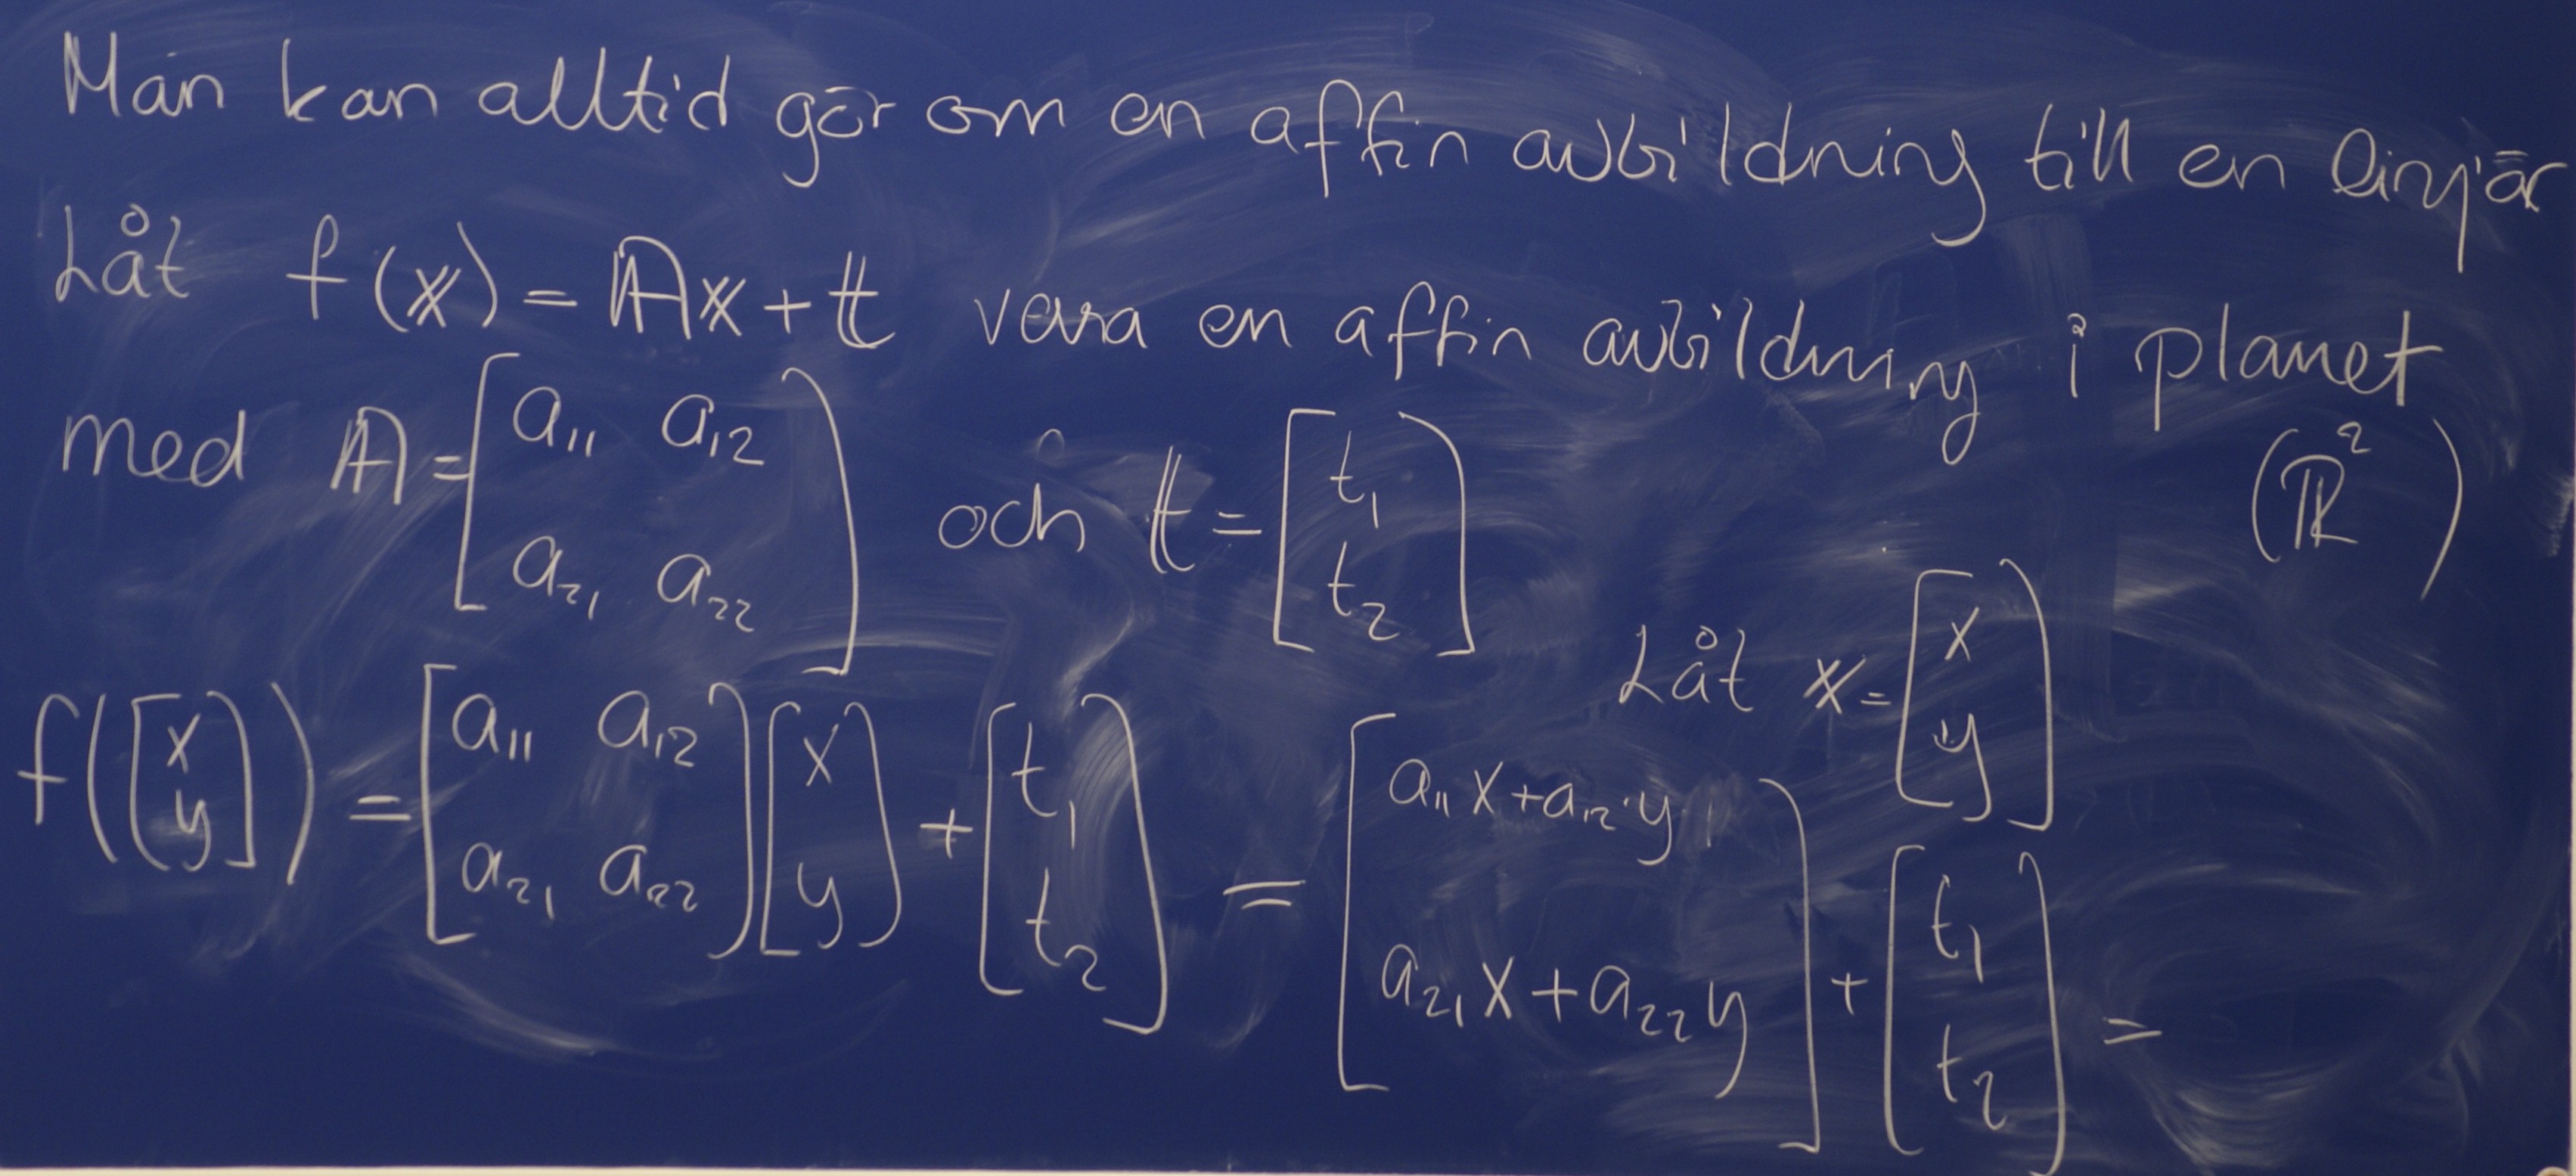 Man kan alltid gör om en affin avbildning till en linjär
Låt f(𝕩) = 𝔸𝕩 + 𝕥 vara en affin avbildning i planet
med 𝔸 = [a₁₁ a₁₂; a₂₁ a₂₂] och 𝕥 = [t₁; t₂] (ℝ²)
Låt 𝕩 = [x; y]
f([x; y]) = [a₁₁ a₁₂; a₂₁ a₂₂][x; y] + [t₁; t₂] = [a₁₁x + a₁₂·y; a₂₁x + a₂₂y] + [t₁; t₂] =